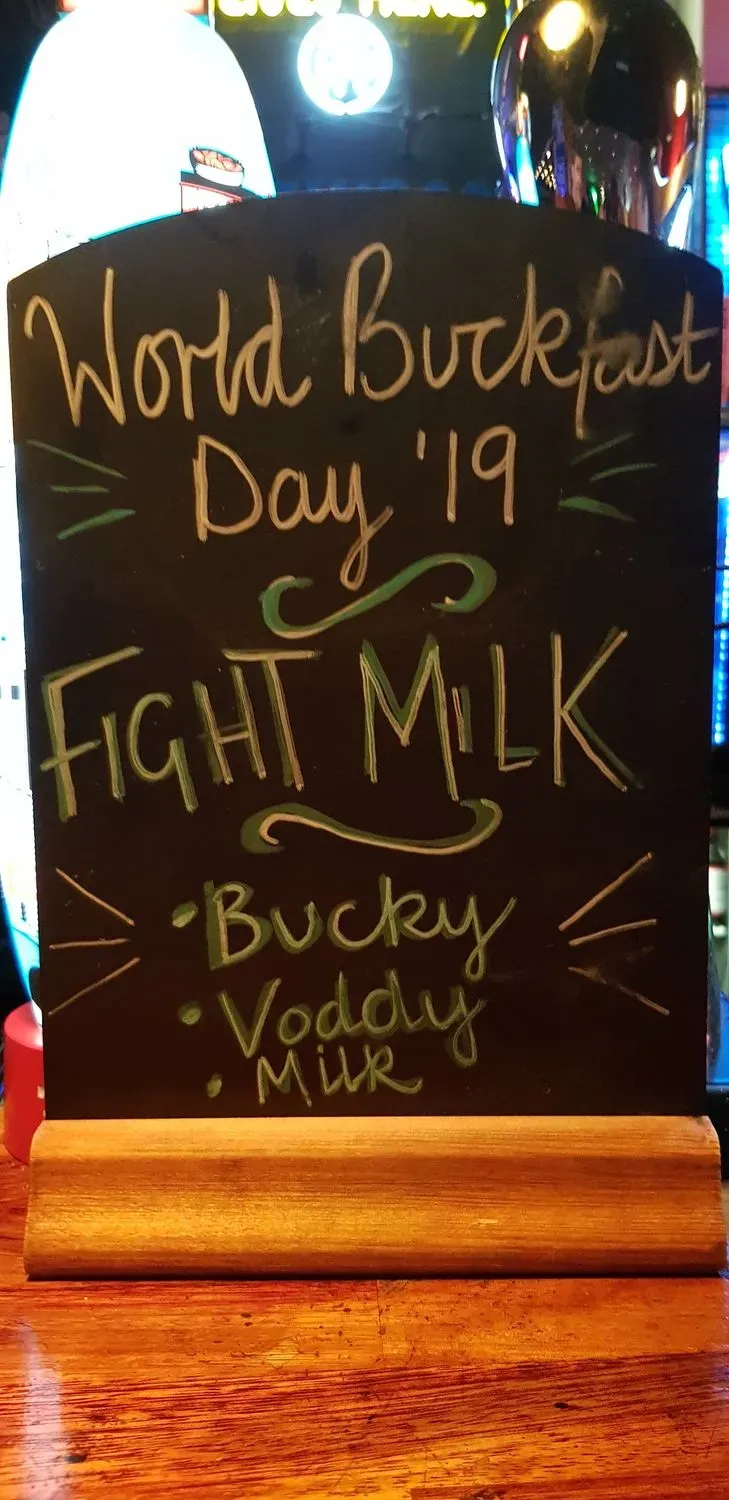 World Buckfast
Day '19
FIGHT MILK
• Bucky
• Voddy
• Milk